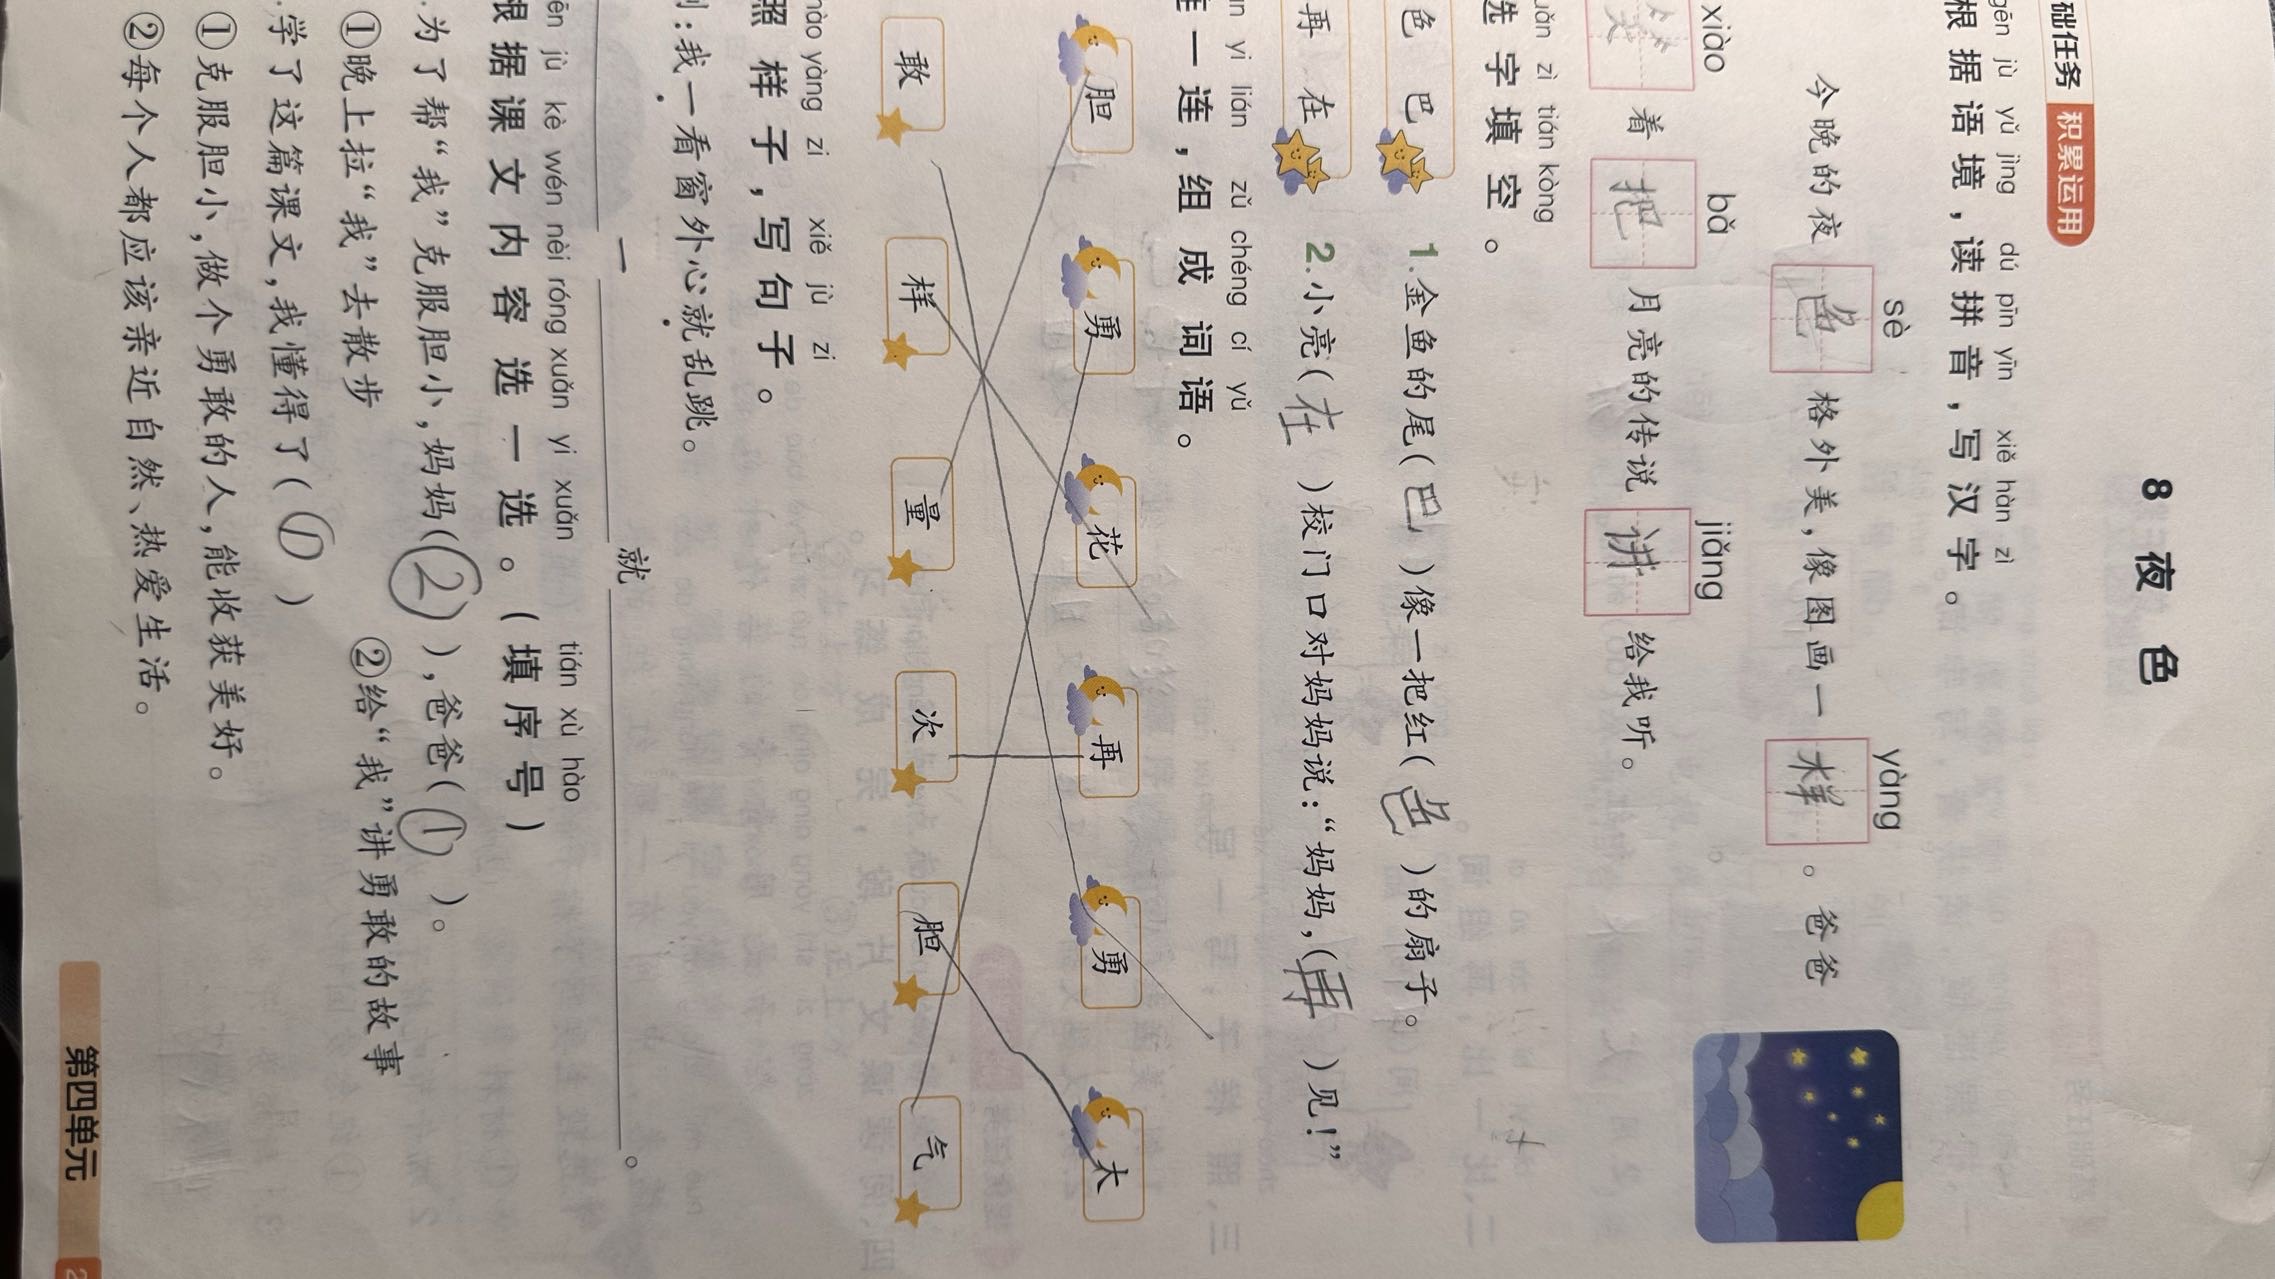 8 夜色
础任务 积累运用
gēn jù yǔ jìng dú pīn yīn xiě hàn zì
根据语境，读拼音，写汉字。
sè yàng
今晚的夜色格外美，像图画一样。爸爸
xiào bǎ jiǎng
笑着把月亮的传说讲给我听。
zì tián kòng
选字填空。
色 巴 1.金鱼的尾(巴)像一把红(色)的扇子。
再 在 2.小亮(在)校门口对妈妈说：“妈妈，(再)见！”
yi lián zǔ chéng cí yǔ
一连，组成词语。
胆 勇 花 再 勇 大
敢 样 量 次 胆 气
yàng zi xiě jù zi
照样子，写句子。
：我一看窗外心就乱跳。
一 就 。
jù kè wén nèi róng xuǎn yi xuǎn tián xù hào
根据课文内容选一选。(填序号)
.为了帮“我”克服胆小，妈妈(②)，爸爸(①)。
①晚上拉“我”去散步 ②给“我”讲勇敢的故事
.学了这篇课文，我懂得了(①)
①克服胆小，做个勇敢的人，能收获美好。
②每个人都应该亲近自然、热爱生活。
第四单元